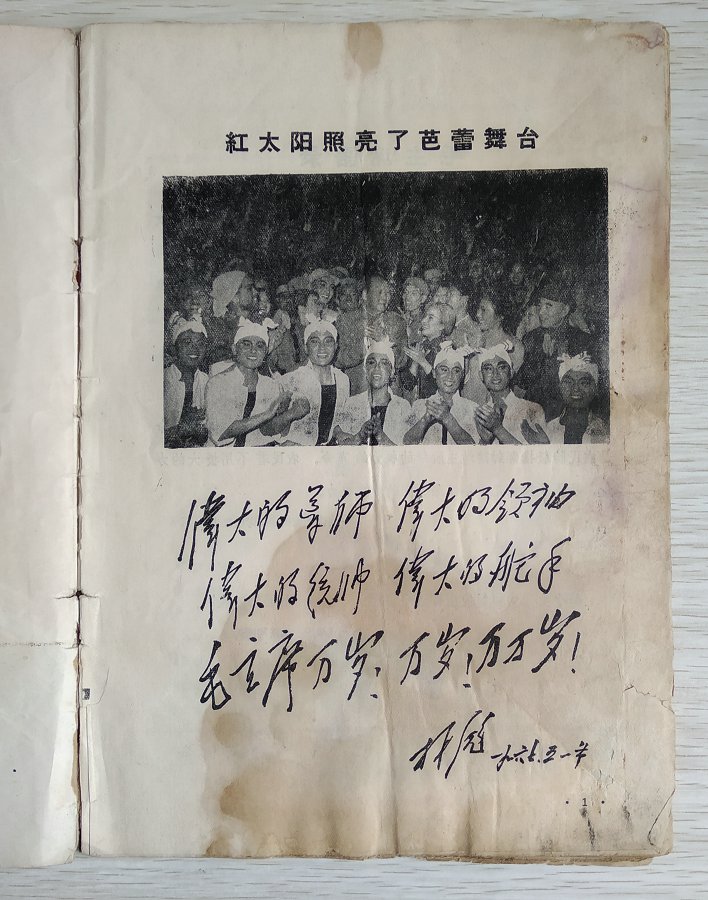 紅太阳照亮了芭蕾舞台
偉大的导师 偉大的领袖
偉大的统帅 偉大的舵手
毛主席万岁！万岁！万万岁！
林彪 一九六七.五.一节
· 1 ·